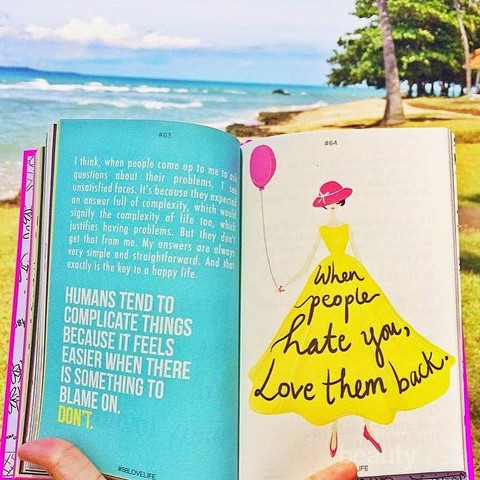 #63
I think, when people come up to me to ask
questions about their problems, I see
unsatisfied faces. It's because they expected
an answer full of complexity, which would
signify the complexity of life too, which
justifies having problems. But they don't
get that from me. My answers are always
very simple and straightforward. And that
exactly is the key to a happy life.
HUMANS TEND TO
COMPLICATE THINGS
BECAUSE IT FEELS
EASIER WHEN THERE
IS SOMETHING TO
BLAME ON.
DON'T.
#88LOVELIFE
#64
When
people
hate you,
Love them back.
LIFE
beauty